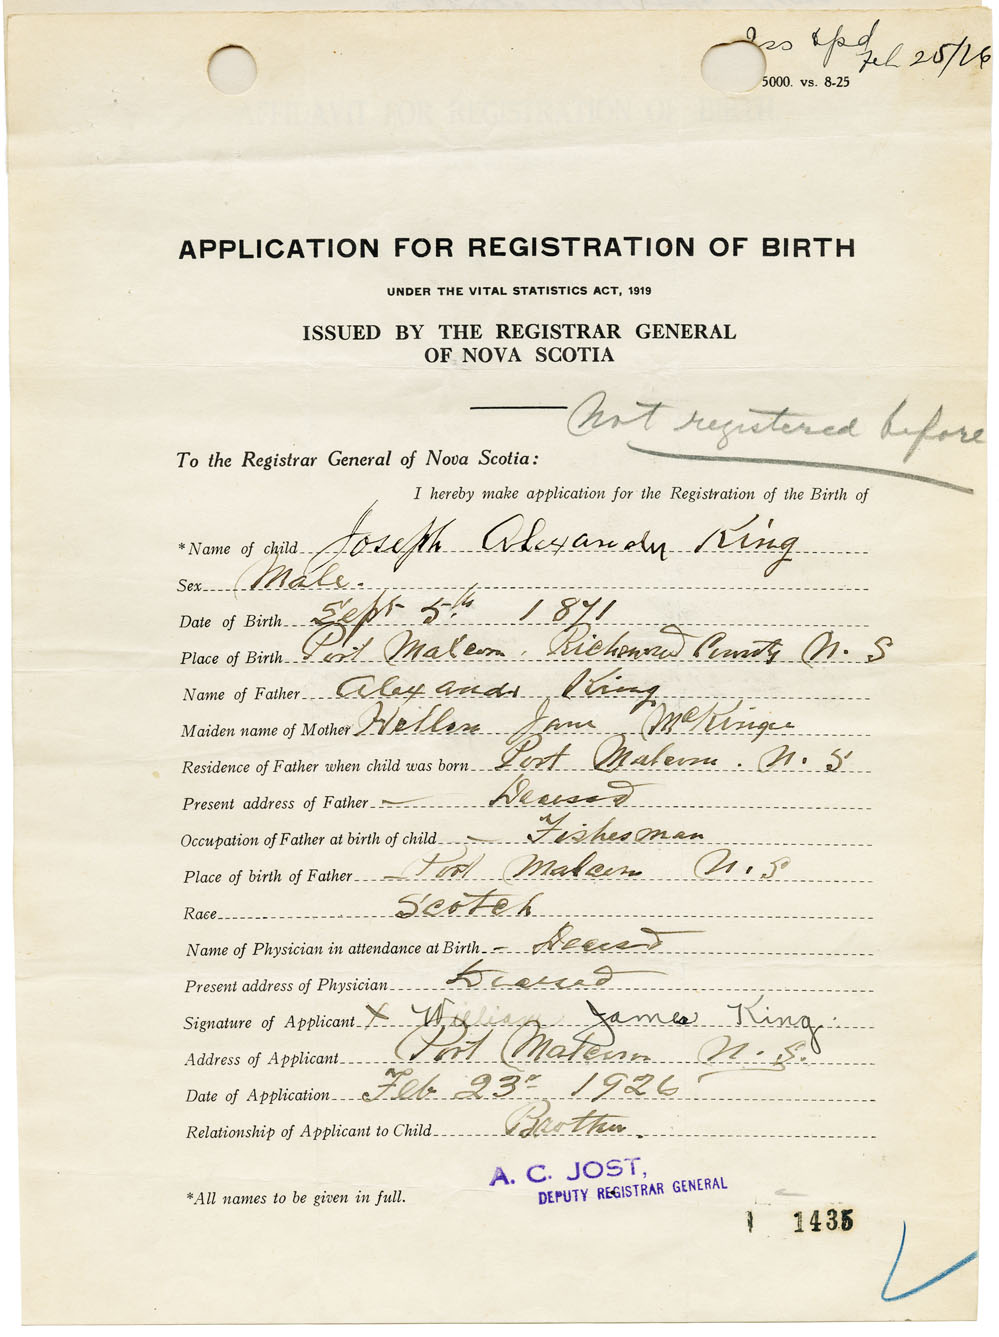 Feb 25/26
5000. vs. 8-25
APPLICATION FOR REGISTRATION OF BIRTH
UNDER THE VITAL STATISTICS ACT, 1919
ISSUED BY THE REGISTRAR GENERAL
OF NOVA SCOTIA
Not registered before
To the Registrar General of Nova Scotia:
I hereby make application for the Registration of the Birth of
*Name of child Joseph Alexander King
Sex Male.
Date of Birth Sept 5th 1871
Place of Birth Port Malcom, Richmond County N. S
Name of Father Alexandr King
Maiden name of Mother Jane
Residence of Father when child was born Port Malcom. N. S
Present address of Father — Decesed
Occupation of Father at birth of child — Fisherman
Place of birth of Father — Port Malcom N. S
Race Scotch
Name of Physician in attendance at Birth — Decesed
Present address of Physician Deceased
Signature of Applicant X William James King.
Address of Applicant Port Malcom N. S.
Date of Application Feb 23rd 1926
Relationship of Applicant to Child Brother.
A. C. JOST,
DEPUTY REGISTRAR GENERAL
*All names to be given in full.
1435